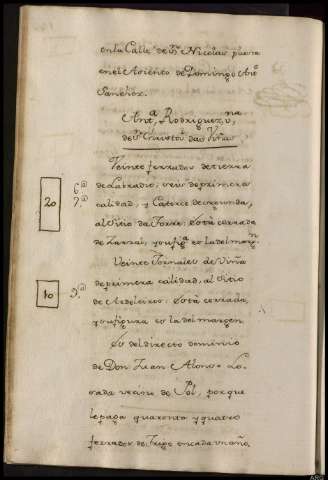 en la Calle de Sn. Nicolas puesta
en el Asiento de Domingo Anto.
Sanchez.
Anta. Rodriguez, vna.
de Sn. Christol. das Viñas
Veinte ferrados de tierra
de Labradio, seis de primera
6.a
calidad, y Catorce de segunda,
7.a
20
al sitio da Torre: està cerrada
de Zarzal, y su figa. es la del margn.
Veinte Jornales de Viña
de primera calidad, al Sitio
9.a
10
de Ardeleiro: està cerrada,
y su figura es la del margen.
Es del directo dominio
de Don Juan Alonso Lo-
sada vecino de Sol, por que
le paga quarenta y quatro
ferrados de Trigo en cada vn año,